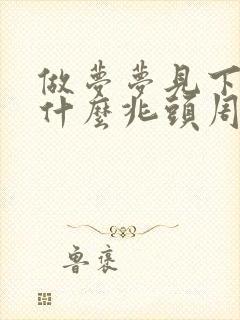 做夢夢見下
什麼兆頭周
魯褒